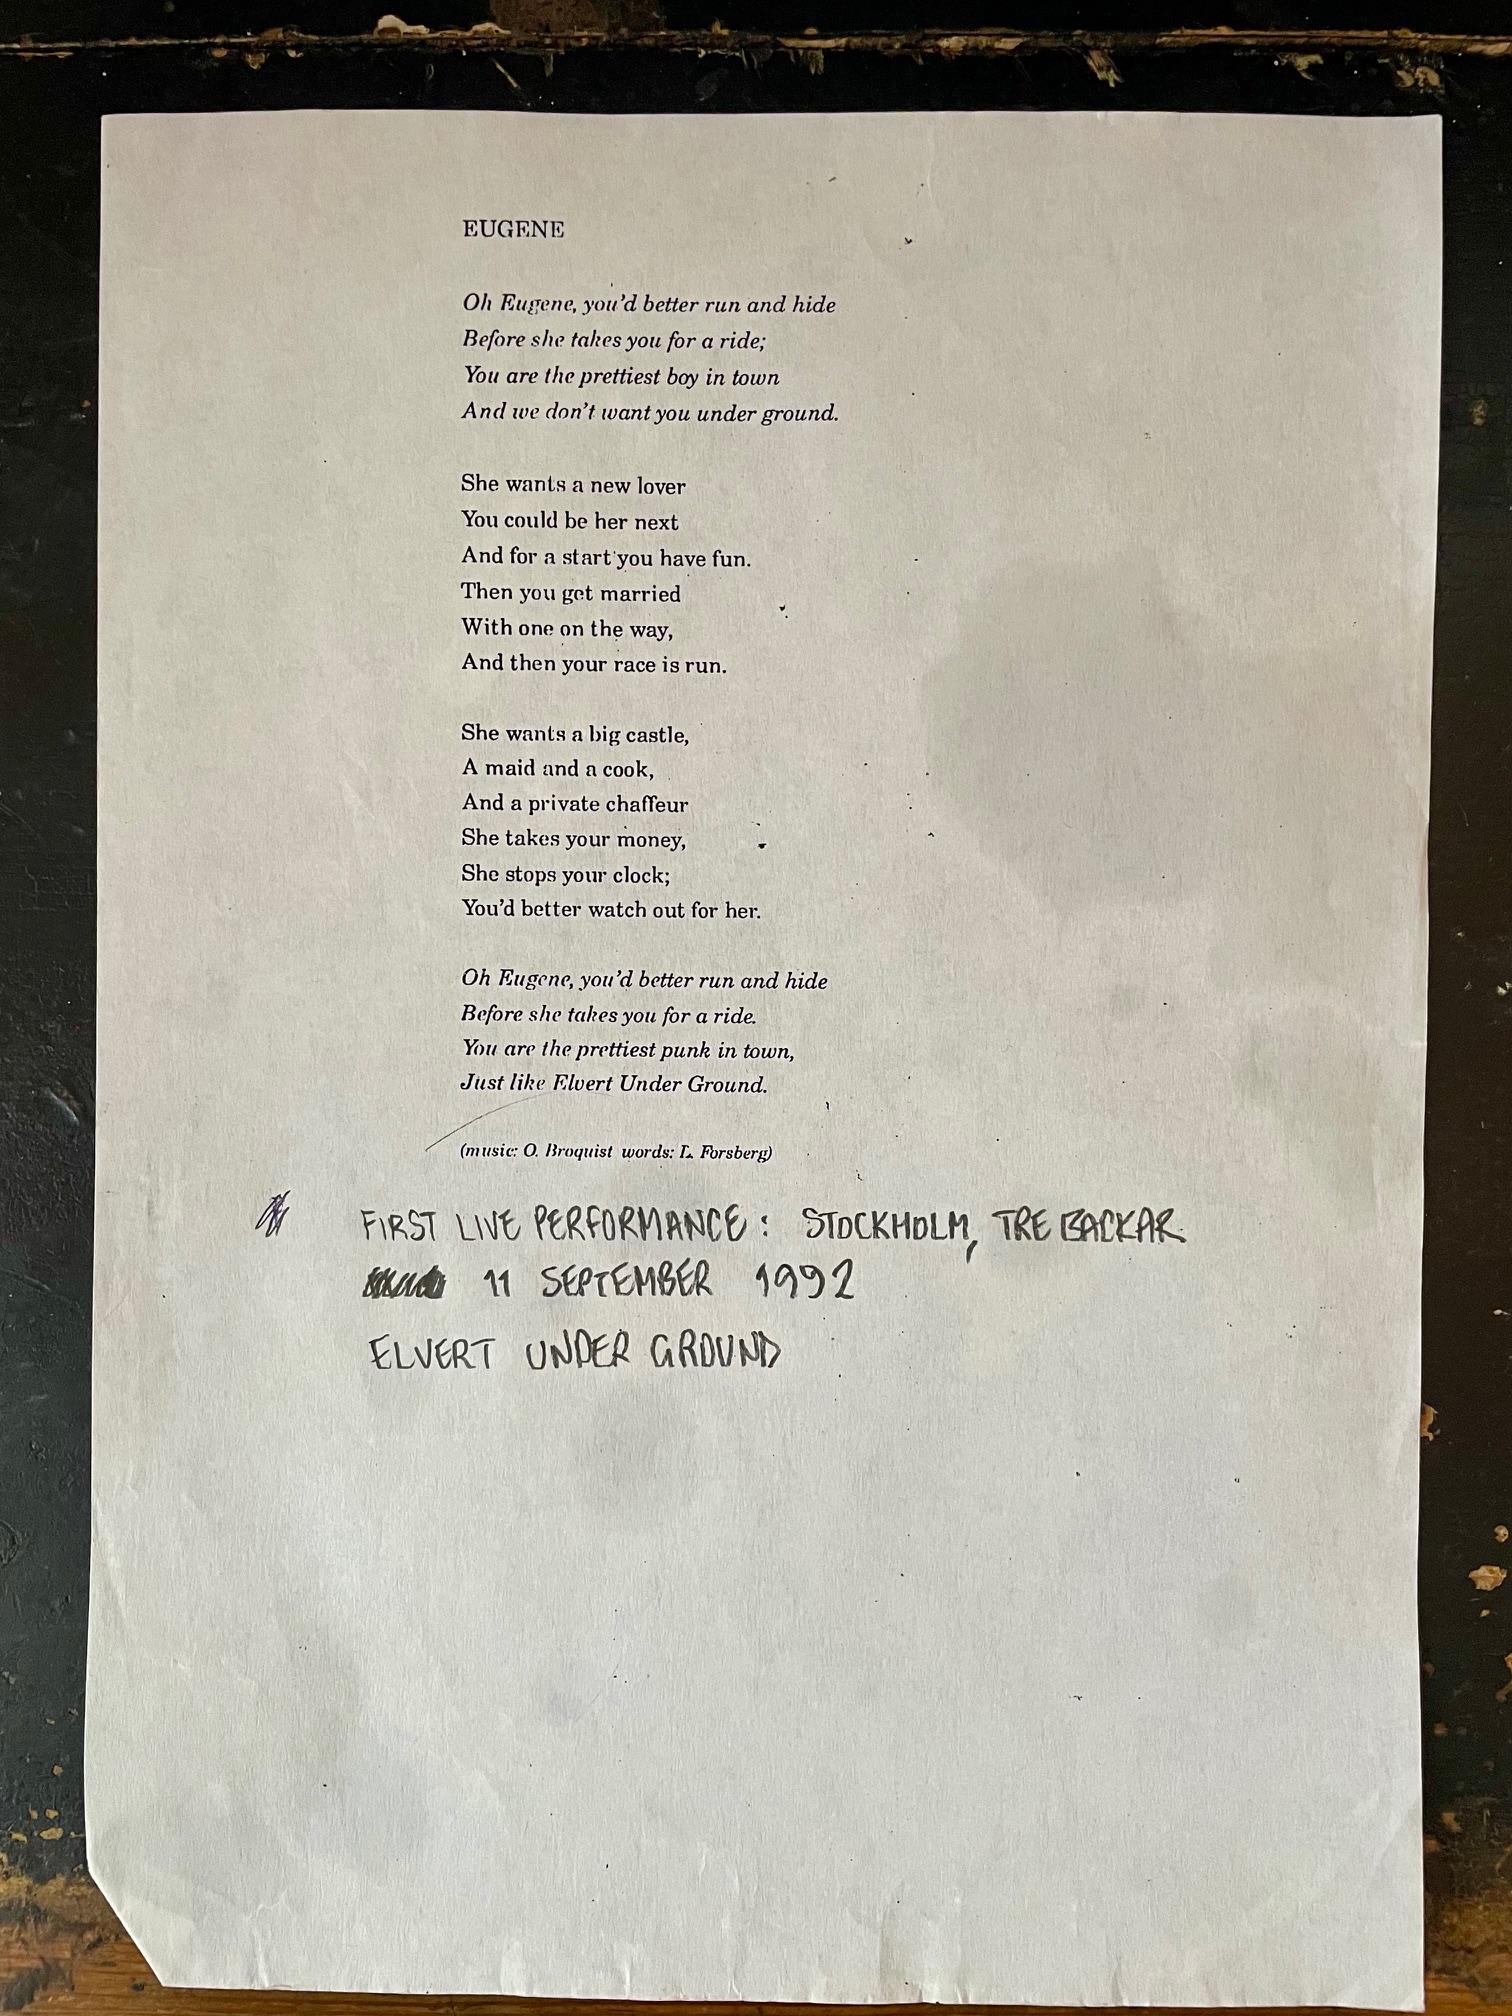 EUGENE
Oh Eugene, you'd better run and hide
Before she takes you for a ride;
You are the prettiest boy in town
And we don't want you under ground.
She wants a new lover
You could be her next
And for a start you have fun.
Then you get married
With one on the way,
And then your race is run.
She wants a big castle,
A maid and a cook,
And a private chaffeur
She takes your money,
She stops your clock;
You'd better watch out for her.
Oh Eugene, you'd better run and hide
Before she takes you for a ride.
You are the prettiest punk in town,
Just like Elvert Under Ground.
(music: O. Broquist words: L. Forsberg)
FIRST LIVE PERFORMANCE: STOCKHOLM, TRE BACKAR
11 SEPTEMBER 1992
ELVERT UNDER GROUND